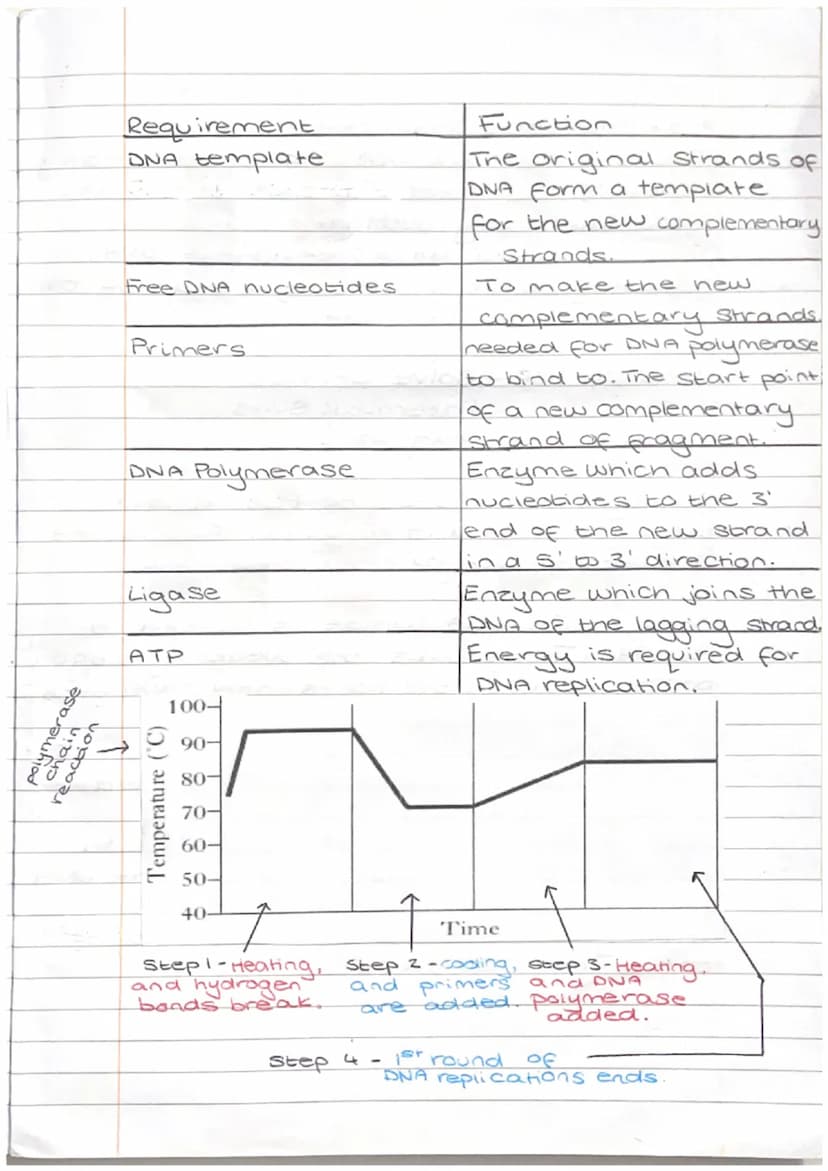 Requirement Function
DNA template The original strands of
DNA form a template
for the new complementary
strands.
Free DNA nucleotides To make the new
complementary strands
Primers needed for DNA polymerase
to bind to. The start point
of a new complementary
strand of fragment.
DNA Polymerase Enzyme which adds
nucleotides to the 3'
end of the new strand
in a 5' to 3' direction.
Ligase Enzyme which joins the
DNA of the lagging strand
ATP Energy is required for
DNA replication.
polymerase
chain
reaction
Temperature (°C)
100
90
80
70
60
50
40
Time
Step 1 - Heating,
and hydrogen
bonds break.
Step 2 - cooling,
and primers
are added.
Step 3 - Heating,
and DNA
polymerase
added.
Step 4 - 1st round of
DNA replications ends.